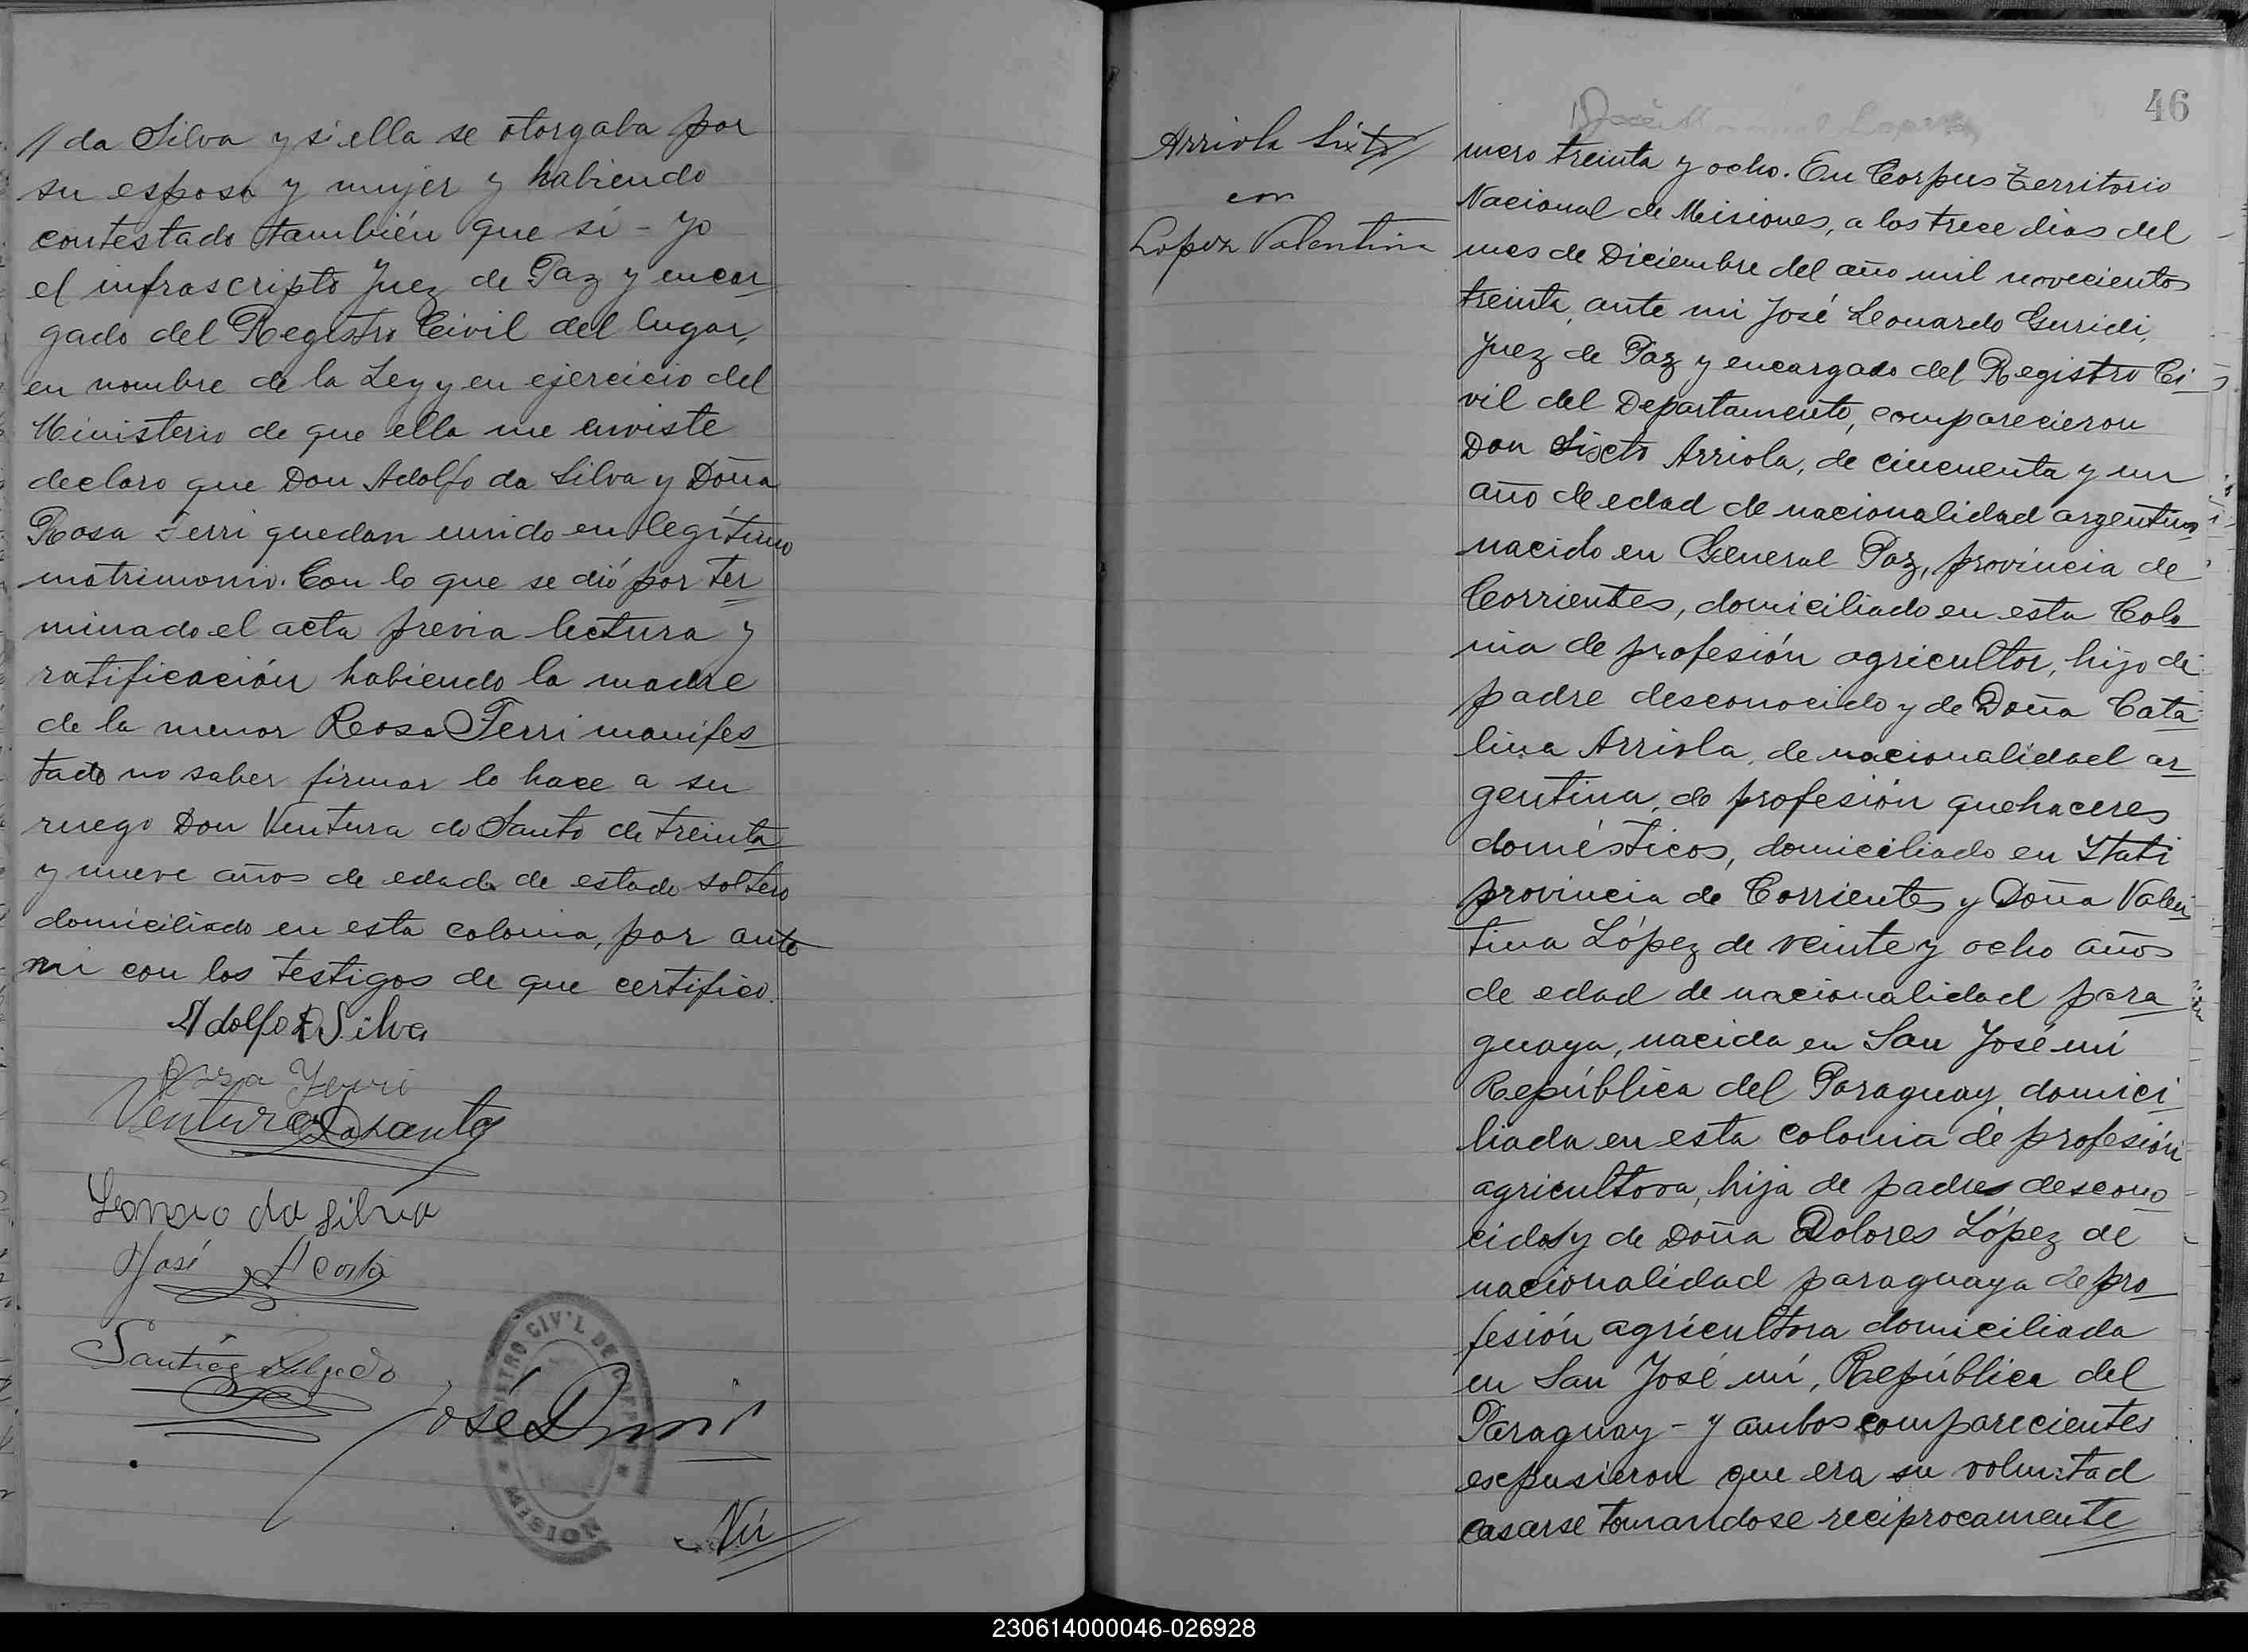 // da Silva y si ella se otorgaba por
su esposo y mujer y habiendo
contestado también que sí - yo
el infrascripto Juez de Paz y encar
gado del Registro Civil del lugar,
en nombre de la Ley y en ejercicio del
Ministerio de que ella me enviste
declaro que Don Adolfo da Silva y Doña
Rosa Ferri quedan unido en legítimo
matrimonio. Con lo que se dió por ter
minado el acta previa lectura y
ratificación habiendo la madre
de la menor Rosa Ferri manifes
tado no saber firmar lo hace a su
ruego Don Ventura do Santo de treinta
y nueve años de edad de estado soltero
domiciliado en esta colonia, por ante
mi con los testigos de que certifico.
Adolfo D Silva
Rosa Ferri
Ventura
da Silva
José Acosta
Santiago Delgado
José
REGISTRO CIVIL DE CORPUS
* MISIONES *
Nú
46
Arriola Sixto
con
Lopez Valentina
mero treinta y ocho. En Corpus Territorio
Nacional de Misiones, a los trece dias del
mes de Diciembre del año mil novecientos
treinta, ante mi José Leonardo Guridi,
Juez de Paz y encargado del Registro Ci
vil del Departamento, comparecieron
Don Siscto Arriola, de cincuenta y un
año de edad de nacionalidad argentino
nacido en General Paz, provincia de
Corrientes, domiciliado en esta Colo
nia de profesión agricultor, hijo de
padre desconocido y de Doña Cata
lina Arriola, de nacionalidad ar
gentina, de profesión quehaceres
domésticos, domiciliado en Itati
provincia de Corrientes y Doña Valen
tina López de veinte y ocho años
de edad de nacionalidad para
guaya, nacida en San José mí
República del Paraguay, domici
liada en esta colonia de profesión
agricultora, hija de padres descono
cidos y de Doña Dolores López de
nacionalidad paraguaya de pro
fesión agricultora domiciliada
en San José mí, República del
Paraguay - y ambos comparecientes
escpusieron que era su voluntad
casarse tomandose reciprocamente
230614000046-026928